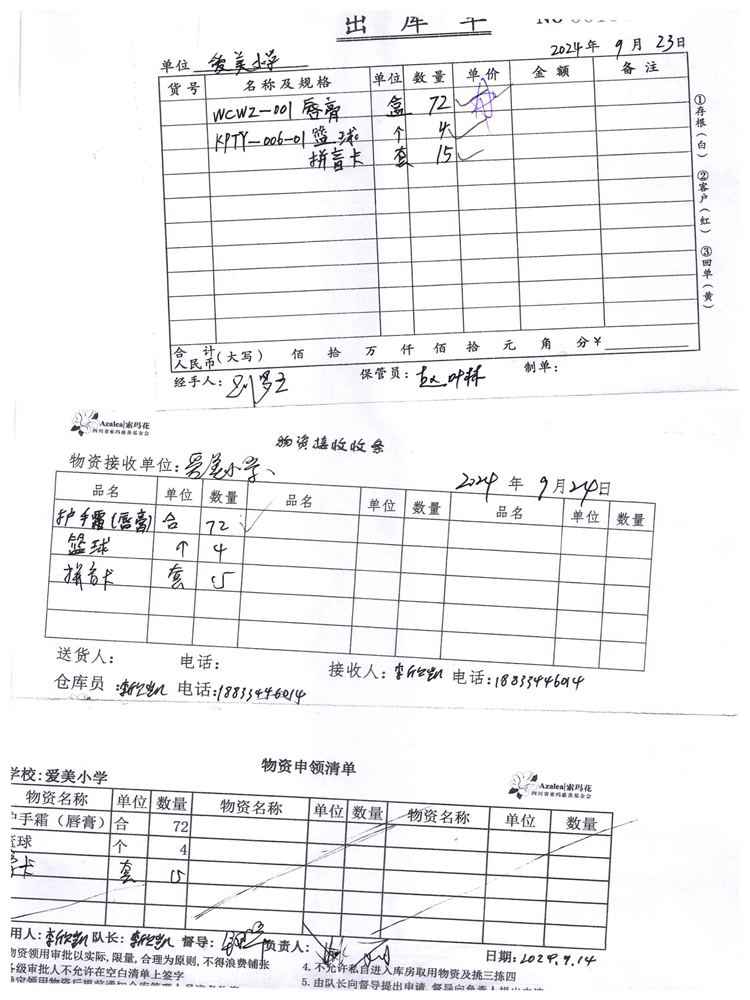 出库单
2024年9月23日
单位 爱美小学
货号 名称及规格 单位 数量 单价 金额 备注
WCWZ-001 唇膏 盒 72
KPTY-006-01 篮球 个 4
拼音卡 套 15
①存根(白) ②客户(红) ③回单(黄)
合计人民币(大写) 佰 拾 万 仟 佰 拾 元 角 分 ¥
经手人: 保管员: 制单:
Azalea|索玛花
四川省索玛慈善基金会
物资接收收条
物资接收单位:爱美小学
2024年9月24日
品名 单位 数量 品名 单位 数量 品名 单位 数量
护手霜(唇膏) 合 72
篮球 个 4
拼音卡 套 15
送货人: 电话: 接收人:李欣凯 电话:18833446014
仓库员:李欣凯 电话:18833446014
物资申领清单
Azalea|索玛花
四川省索玛慈善基金会
学校:爱美小学
物资名称 单位 数量 物资名称 单位 数量 物资名称 单位 数量
护手霜(唇膏) 合 72
篮球 个 4
卡 套 15
用人:李欣凯 队长:李欣凯 督导: 负责人: 日期:2024.9.14
物资领用审批以实际,限量,合理为原则,不得浪费铺张
4. 不允许私自进入库房取用物资及挑三拣四
各级审批人不允许在空白清单上签字
5. 由队长向督导提出申请,督导向负责人